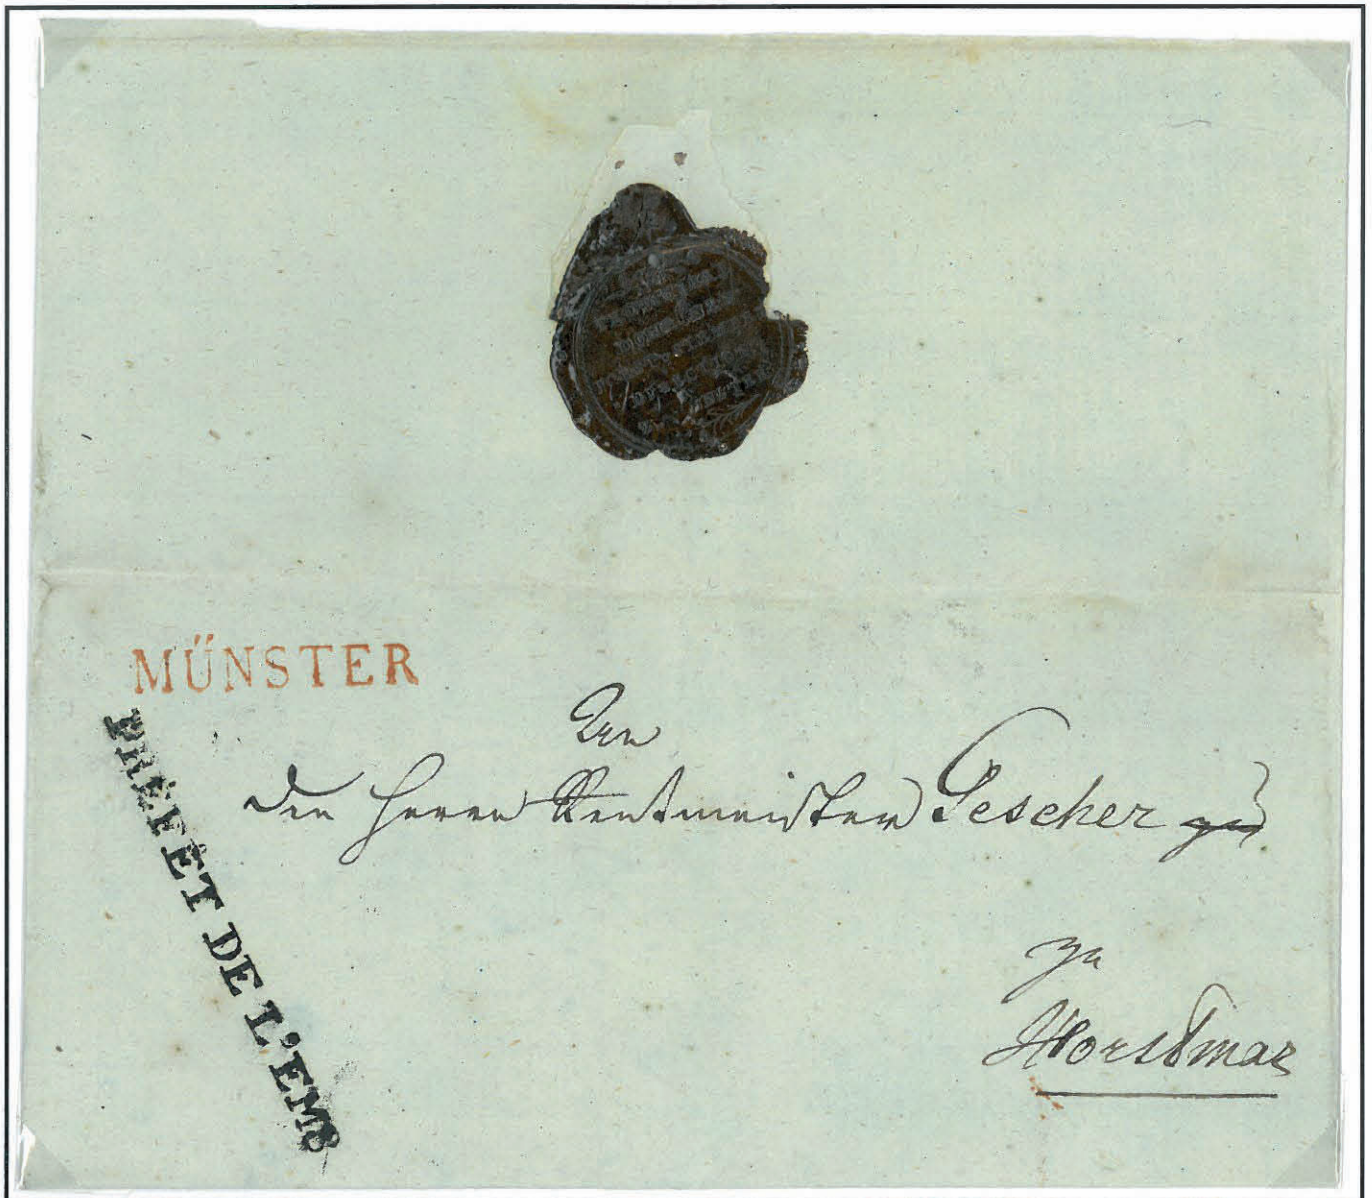 MÜNSTER
PRÉFÉT DE L'EMS
An
den Herrn Rentmeister Pescher
zu
Horstmar